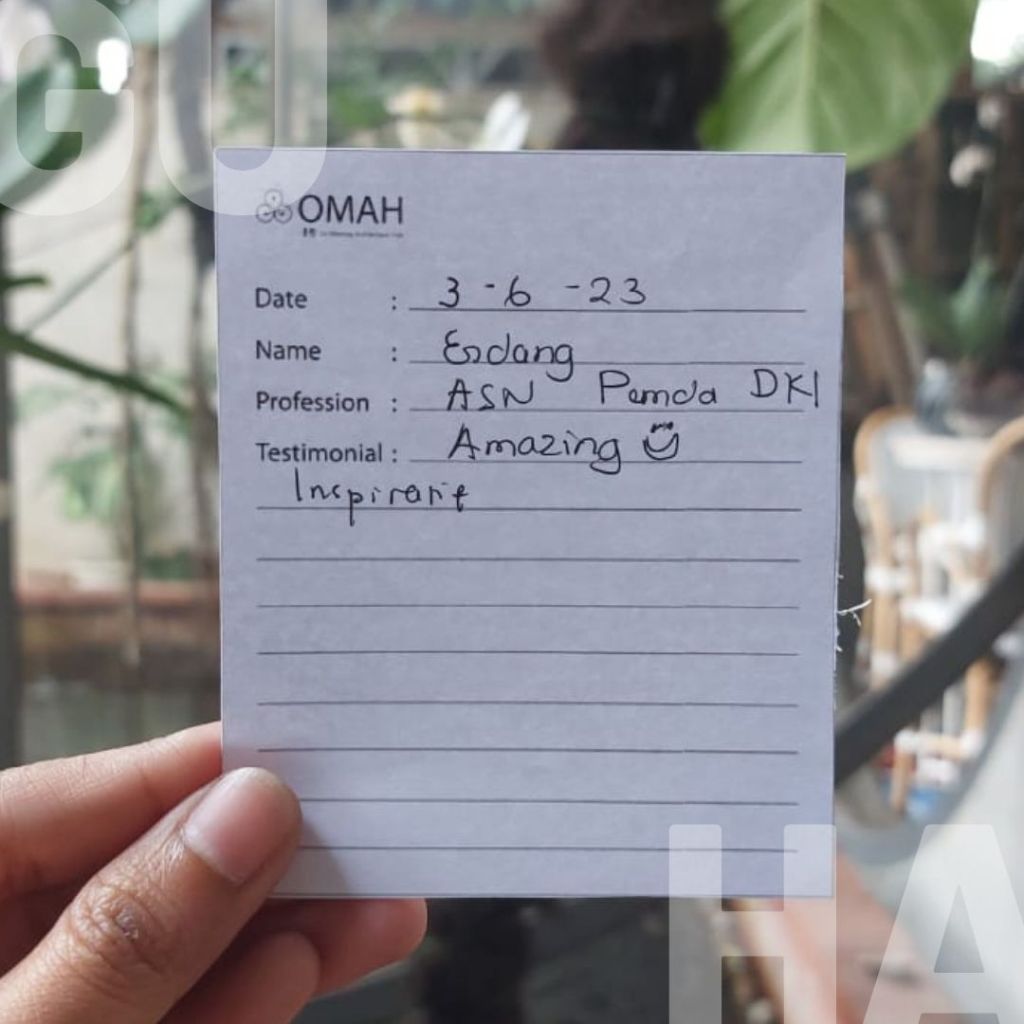 GU
OMAH
Date : 3-6-23
Name : Endang
Profession : ASN Pemda DKI
Testimonial : Amazing
Inspiratif
HA